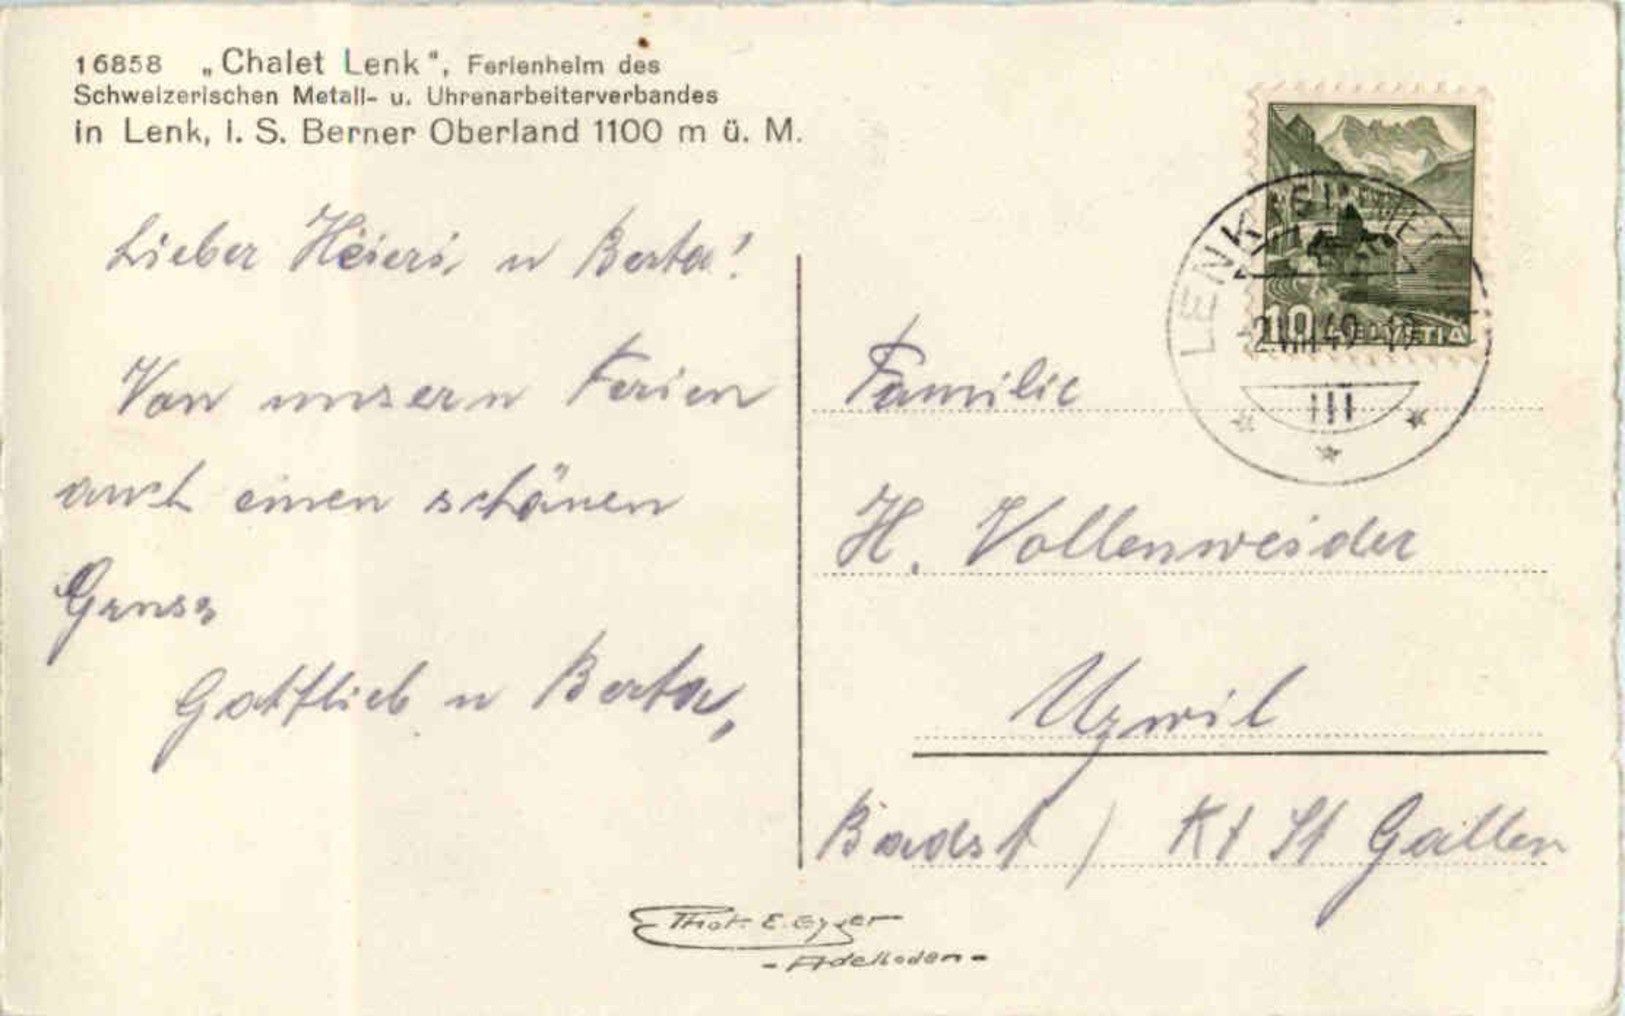 16858 „Chalet Lenk", Ferienheim des
Schweizerischen Metall- u. Uhrenarbeiterverbandes
in Lenk, i. S. Berner Oberland 1100 m ü. M.
Lieber Heieri u Berta!
Von unsern Ferien
auch einen schönen
Gruss
Gottlieb u Berta,
LENK
10 HELVETIA
Familie
H. Vollenweider
Uzwil
Badst / Kt St Gallen
Phot. E. Gyger
- Adelboden -